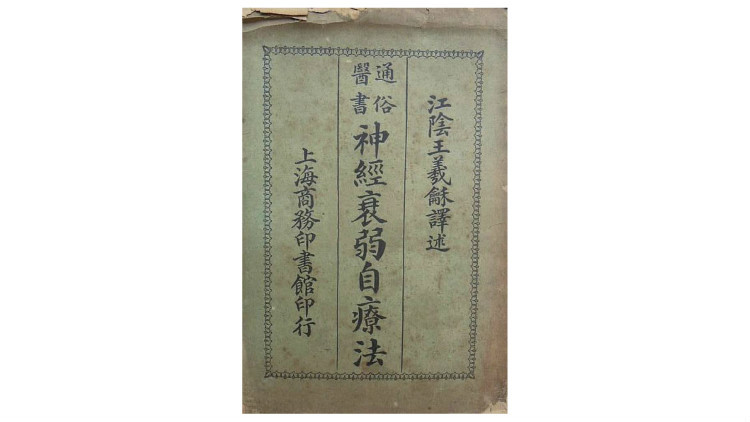 江陰王羲龢譯述
通俗醫書
神經衰弱自療法
上海商務印書館印行